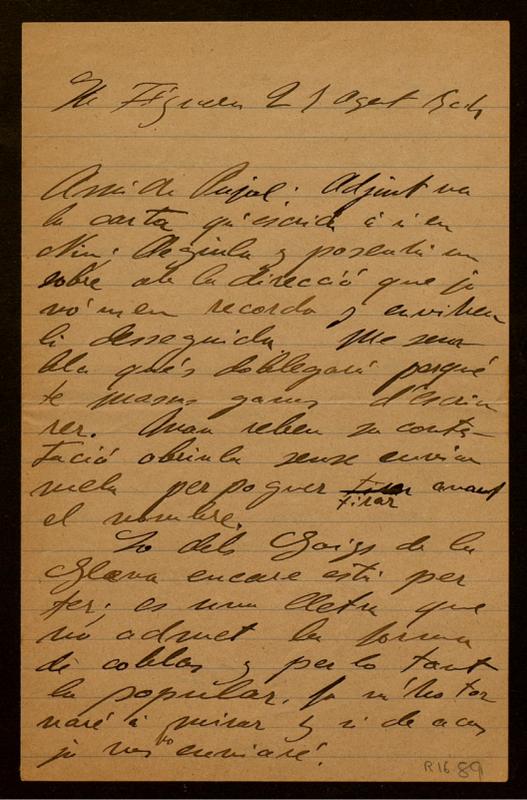 Figueras 21 Agost
Amic Pujol: Adjunt va
la carta qu'escrich á n'en
Nin; llegiula y poseuli un
sobre ab la direcció que jo
nó m'en recordo y enviheu
li desseguida. Me sem
bla qu'es doblegará perqué
te masas ganas d'escriu
rer. Quan rebeu sa contes-
tació obriula sense enviar
mela per poguer tirar avant
el nombre.
Lo dels Goigs de la
Gleva encare está per
fer; es una lletra que
nó admet la forma
de coblas y per lo tant
la popular. Ja m'ho tor
naré á mirar y si de cas
ja vos ho enviaré.
R1689